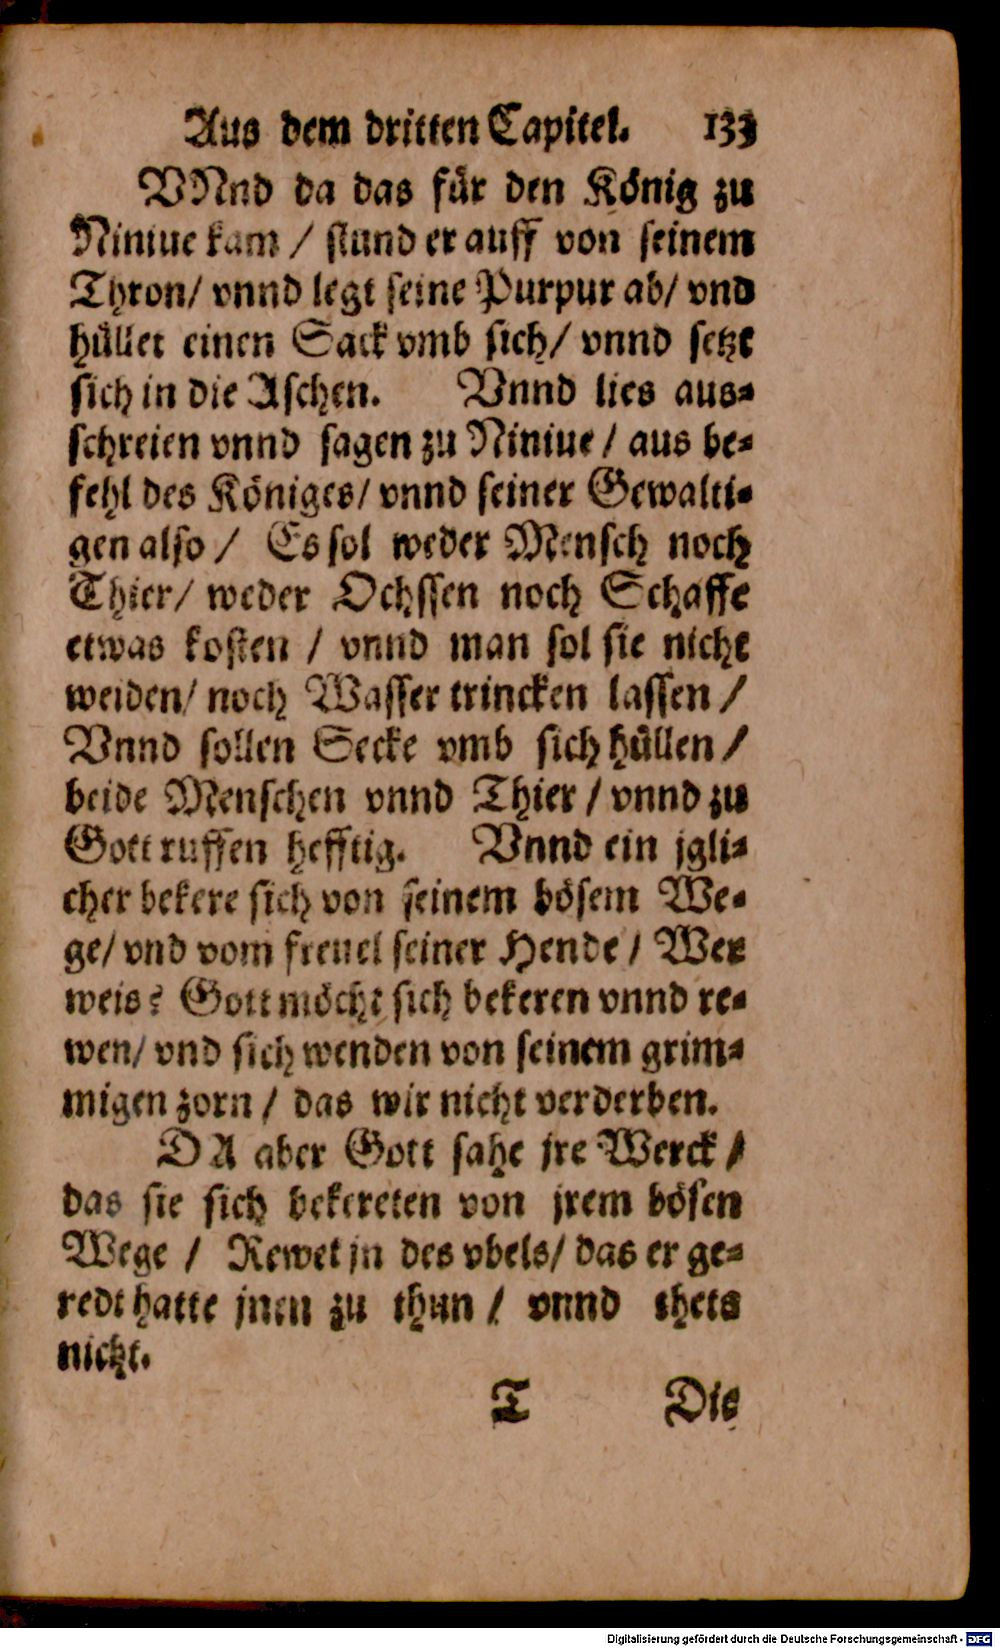 Aus dem dritten Capitel. 133
VNnd da das für den König zu
Niniue kam / stund er auff von seinem
Thron/ vnnd legt seine Purpur ab/ vnd
hüllet einen Sack vmb sich/ vnnd setzt
sich in die Aschen. Vnnd lies aus-
schreien vnnd sagen zu Niniue / aus be-
fehl des Königes/ vnnd seiner Gewalti-
gen also / Es sol weder Mensch noch
Thier/ weder Ochssen noch Schaffe
etwas kosten / vnnd man sol sie nicht
weiden/ noch Wasser trincken lassen /
Vnnd sollen Secke vmb sich hüllen /
beide Menschen vnnd Thier / vnnd zu
Gott ruffen hefftig. Vnnd ein jgli-
cher bekere sich von seinem bösem We-
ge/ vnd vom freuel seiner Hende / Wer
weis? Gott möcht sich bekeren vnnd re-
wen/ vnd sich wenden von seinem grim-
migen zorn / das wir nicht verderben.
DA aber Gott sahe jre Werck /
das sie sich bekereten von jrem bösen
Wege / Rewet jn des vbels/ das er ge-
redt hatte jnen zu thun / vnnd thets
nicht.
T Die
Digitalisierung gefördert durch die Deutsche Forschungsgemeinschaft - DFG